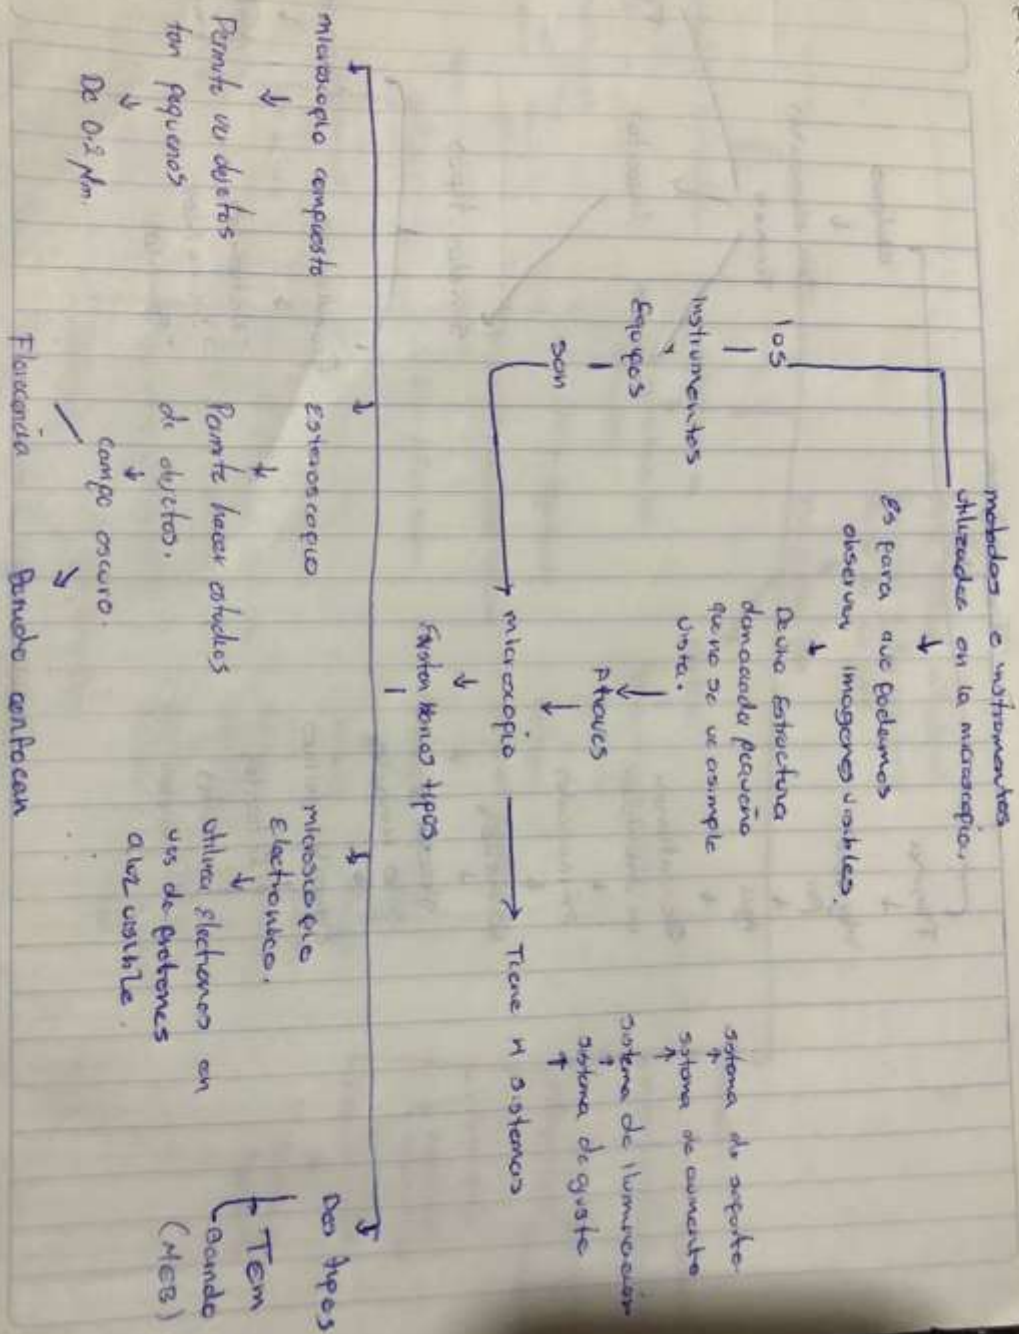 metodos e instrumentos
utilizados en la microscopia.
es para que podemos
observar imagenes visibles.
De una Estructura
demaciada pequeña
que no se ve asimple
vista.
Atraves
los
instrumentos
Equipos
son
microscopio
Tiene 4 sistemas
sistema de soporte
sistema de aumento
sistema de iluminación
sistema de ajuste
Existen tipos.
microscopio compuesto
Permite ver objetos
tan pequeños
De 0.2 µm.
Esteroscopio
Permite hacer estudios
de objetos.
campo oscuro.
microscopio
Electronico.
utiliza Electrones en
ves de protones
a luz visible.
Dos tipos
Tem
Barrido
(MEB)